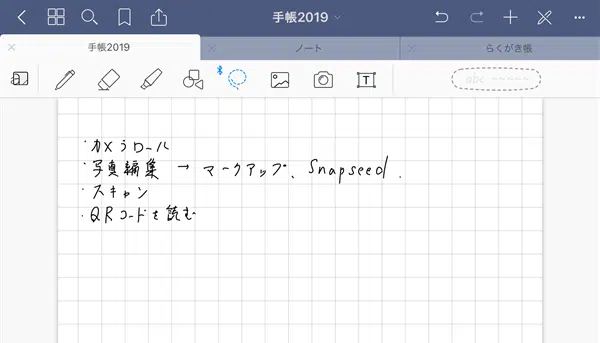 手帳2019
手帳2019
ノート
らくがき帳
T
abc
・カメラロール
・写真編集 → マークアップ、Snapseed.
・スキャン
・QRコードを読む